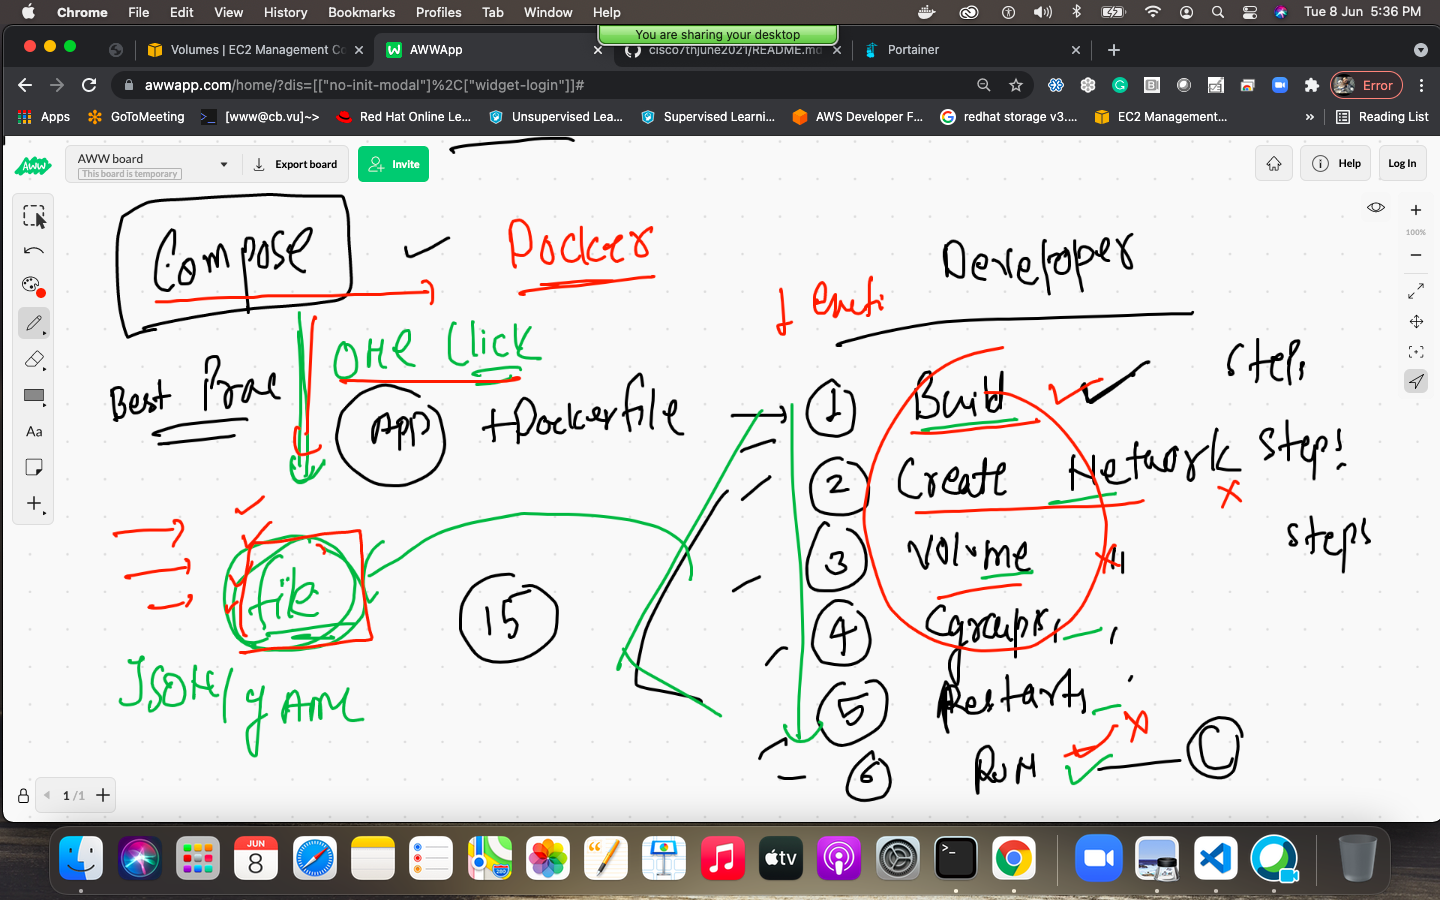 Chrome File Edit View History Bookmarks Profiles Tab Window Help Tue 8 Jun 5:36 PM
You are sharing your desktop
Volumes | EC2 Management Co
AWWApp
cisco7thjune2021/README.md
Portainer
awwapp.com/home/?dis=[["no-init-modal"]%2C["widget-login"]]#
Error
Apps GoToMeeting [www@cb.vu]~> Red Hat Online Le... Unsupervised Lea... Supervised Learni... AWS Developer F... redhat storage v3.... EC2 Management... » Reading List
AWW
AWW board
This board is temporary
Export board
Invite
Help
Log In
100%
Aa
Compose
Docker
Developer
One Click
Best Prac
App
+Dockerfile
steps
1 Build
2 Create Network
steps
3 Volume
steps
file
15
4 Cgroups,
JSON/YAML
5 Restarts
6 RUN
C
1 /1
JUN
8
tv
280
>_